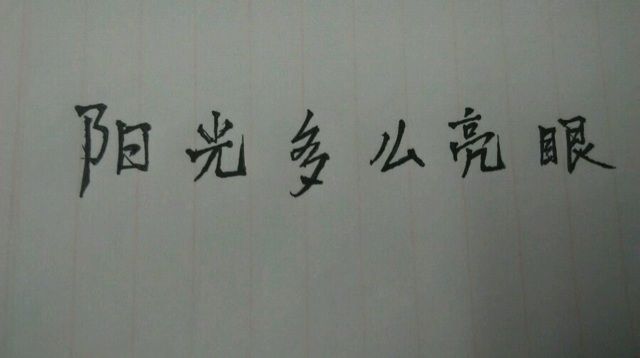 阳光多么亮眼